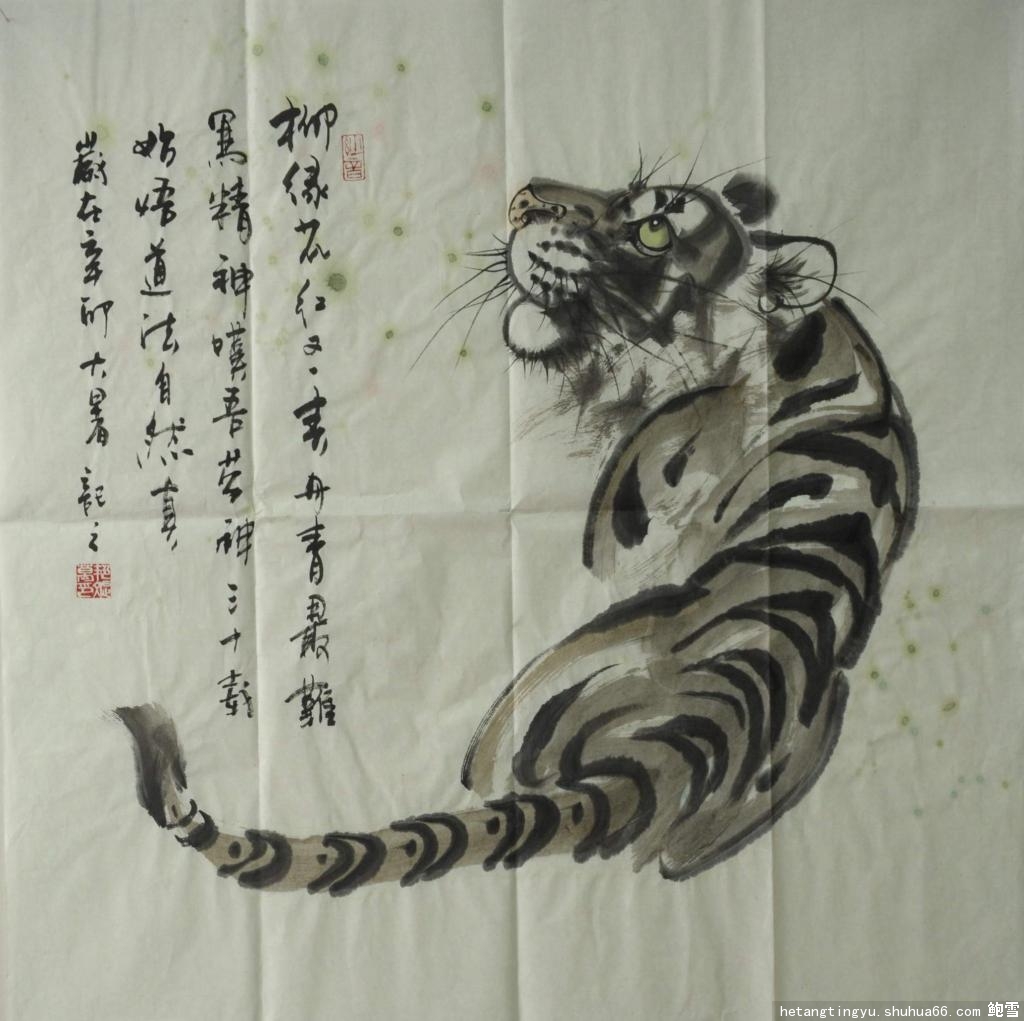 柳緑花红又一春丹青最難
寫精神嘆吾苦三十載
始悟道法自然真
歲在辛卯大暑記之
hetangtingyu.shuhua66.com 鲍雪